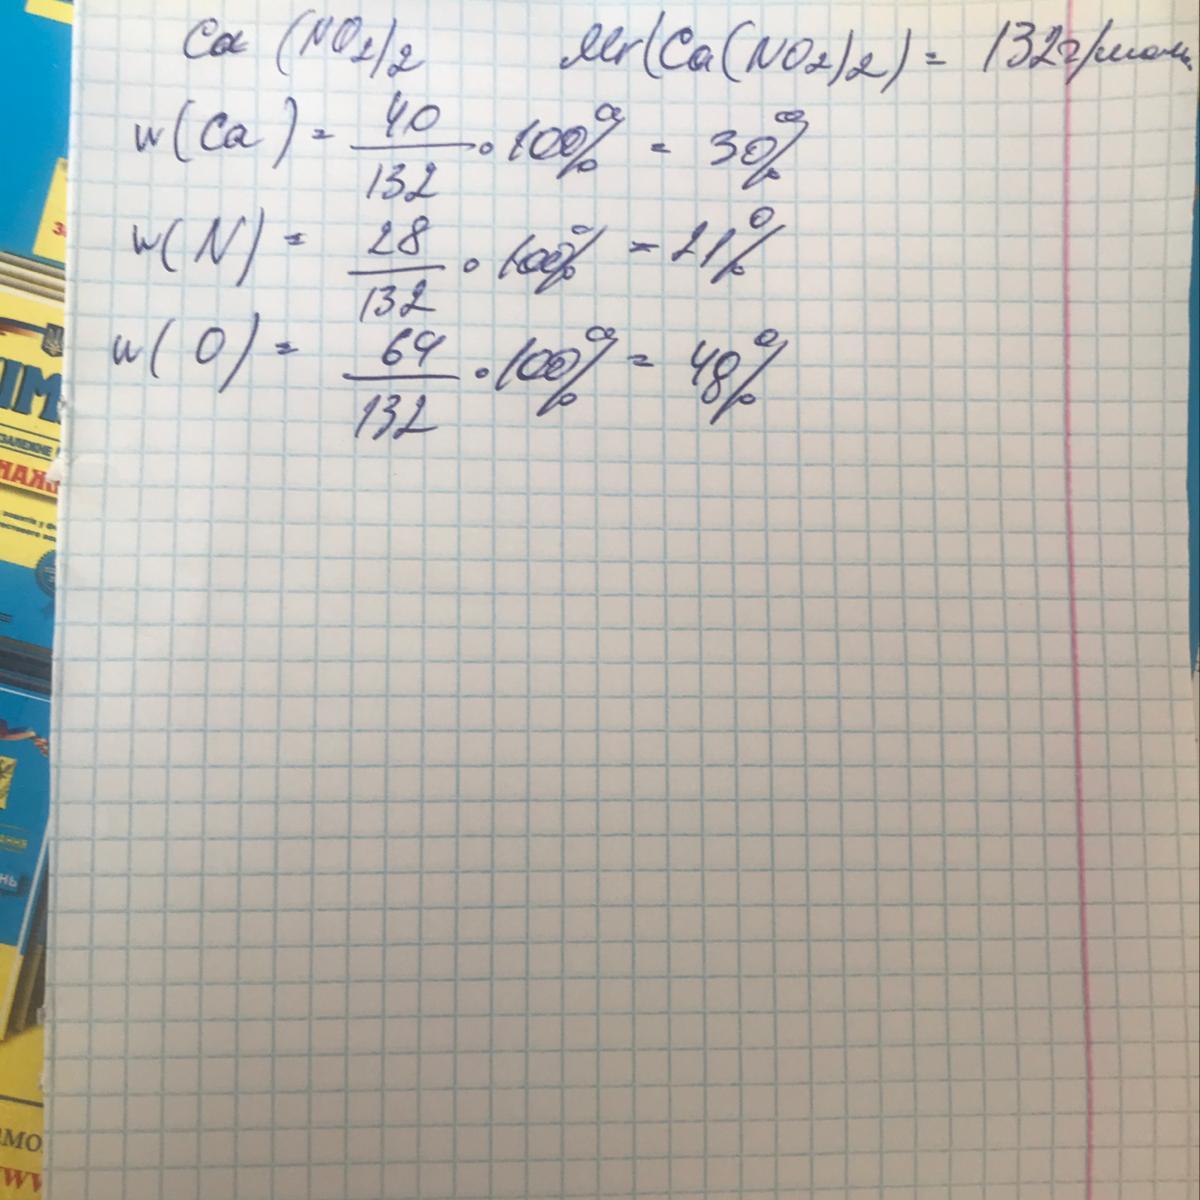 Ca (NO2)2 Mr(Ca(NO2)2) = 132г/моль
w(Ca) = 40/132 · 100% = 30%
w(N) = 28/132 · 100% = 21%
w(O) = 64/132 · 100% = 48%
ІМ
НАЖ
ЗАЛЕЖНЕ
ННЬ
www